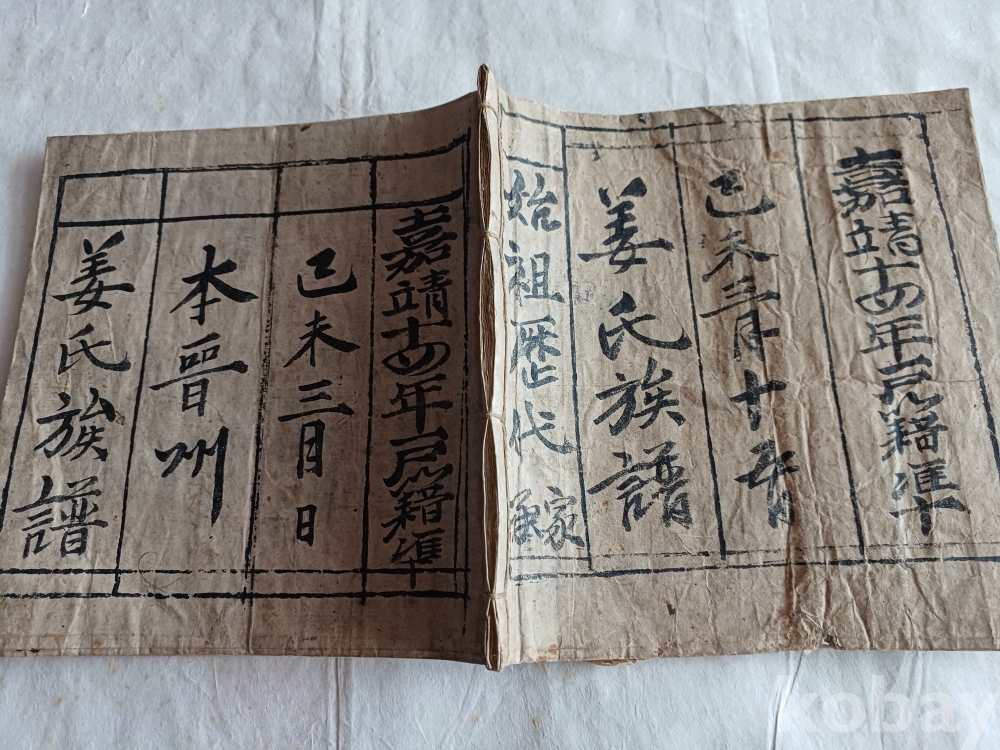 嘉靖十四年戶籍準
己未三月十五日
姜氏族譜
始祖歷代
嘉靖十四年戶籍準
己未三月日
本晉州
姜氏族譜
kobay